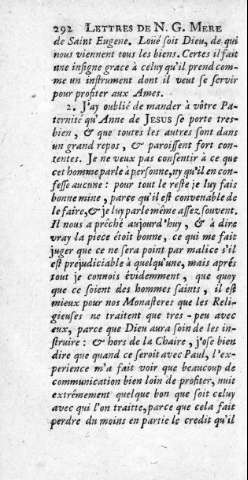 292 LETTRES DE N. G. MERE
de Saint Eugene. Loüé soit Dieu, de qui
nous viennent tous les biens. Certes il fait
une insigne grace à celuy qu'il prend com-
me un instrument dont il veut se servir
pour profiter aux Ames.
2. J'ay oublié de mander à vôtre Pa-
ternité qu'Anne de JESUS se porte tres-
bien, & que toutes les autres sont dans
un grand repos, & paroissent fort con-
tentes. Je ne veux pas consentir à ce que
cet homme parle à personne, ny qu'il en con-
fesse aucune: pour tout le reste je luy fais
bonne mine, parce qu'il est convenable de
le faire, & je luy parle même assez souvent.
Il nous a prêché aujourd'huy, & à dire
vray la piece étoit bonne, ce qui me fait
juger que ce ne sera point par malice s'il
est prejudiciable à quelqu'une, mais aprés
tout je connois évidemment, que quoy
que ce soient des hommes saints, il est
mieux pour nos Monasteres que les Reli-
gieuses ne traitent que tres-peu avec
eux, parce que Dieu aura soin de les in-
struire: & hors de la Chaire, j'ose bien
dire que quand ce seroit avec Paul, l'ex-
perience m'a fait voir que beaucoup de
communication bien loin de profiter, nuit
extrémement quelque bon que soit celuy
avec qui l'on traitte, parce que cela fait
perdre du moins en partie le credit qu'il